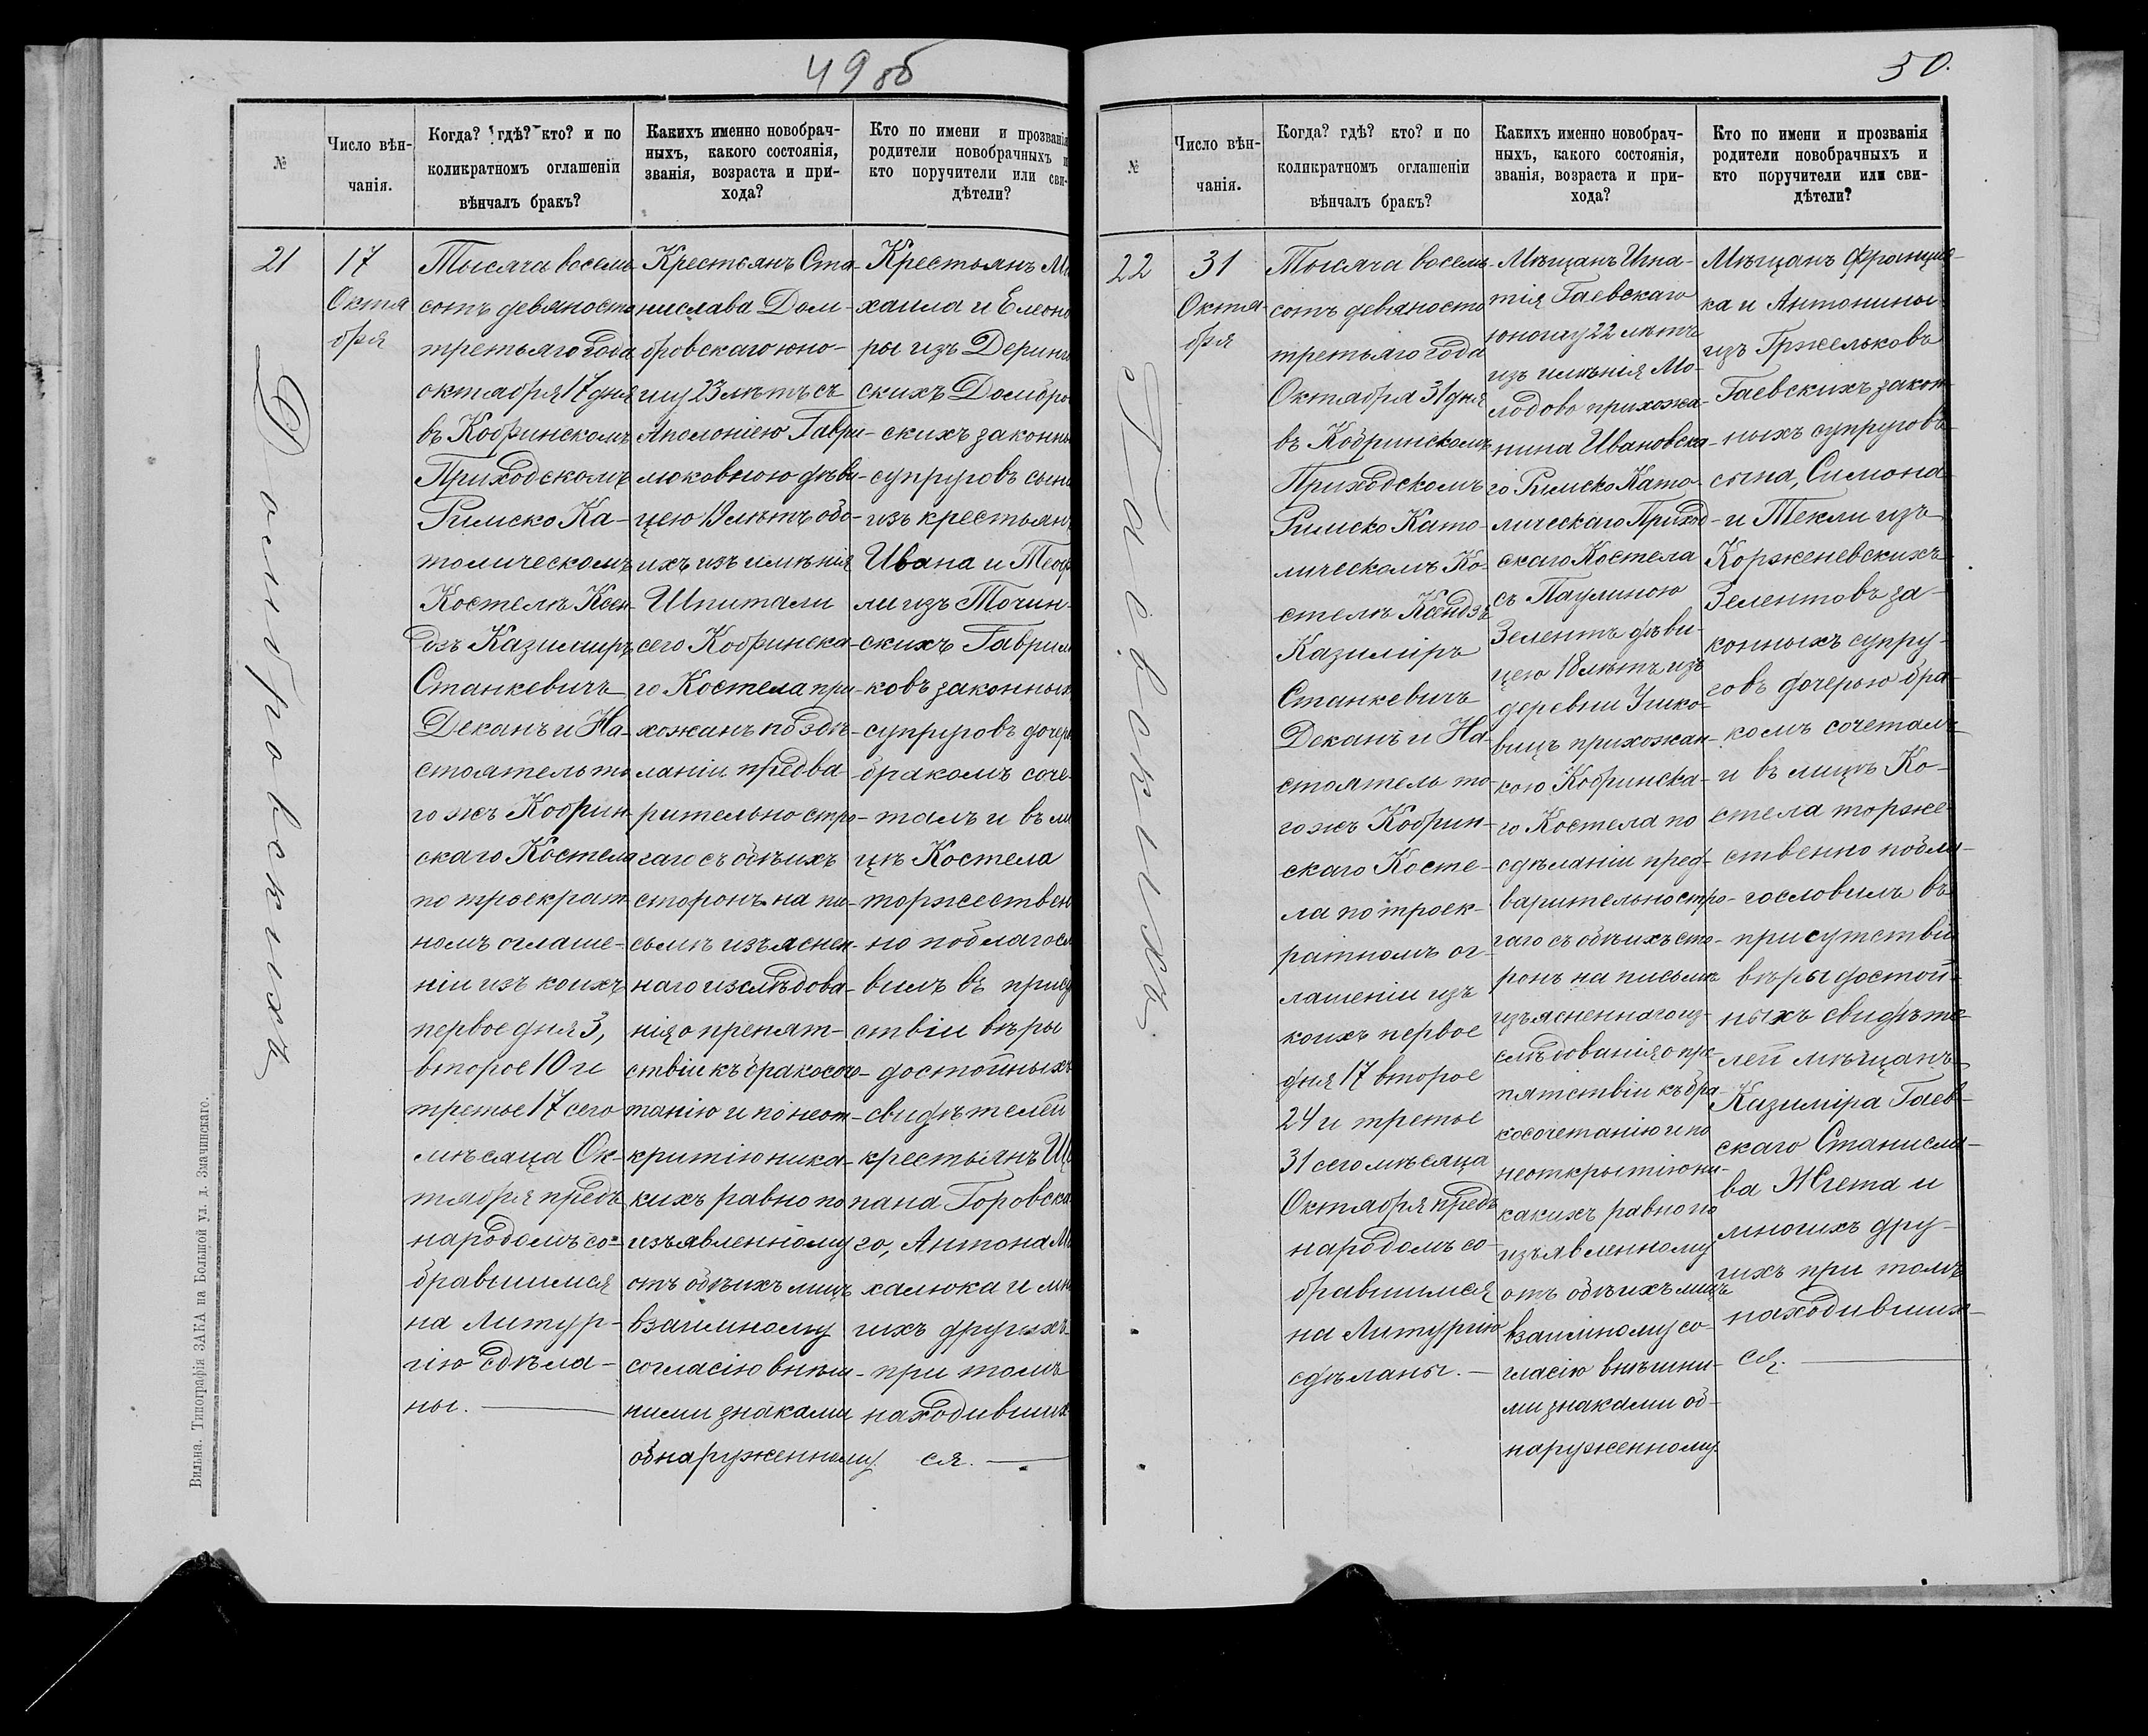 49 об
№
Число вѣн-
чанія.
Когда? гдѣ? кто? и по
коликратномъ оглашеніи
вѣнчалъ бракъ?
Какихъ именно новобрач-
ныхъ, какого состоянія,
званія, возраста и при-
хода?
Кто по имени и прозванія
родители новобрачныхъ и
кто поручители или сви-
дѣтели?
21
Домбровскихъ
17
Октя
бря
Тысяча восемь
сотъ девяносто
третьяго года
октября 17 дня
въ Кобринскомъ
Приходскомъ
Римско Ка-
толическомъ
Костелѣ Ксен-
дзъ Казимиръ
Станкевичъ
Деканъ и На-
стоятель то
го жъ Кобрин
скаго Костела
по троекрат
номъ оглаше-
ніи изъ коихъ
первое дня 3,
второе 10 и
третье 17 сего
мѣсяца Ок-
тября предъ
народомъ со-
бравшимся
на Литур-
гію сдѣла-
ны.
Крестьянъ Ста-
нислава Дом-
бровскаго юно-
шу 23 лѣтъ съ
Аполоніею Гаври-
люковною дѣви-
цею 19 лѣтъ обо-
ихъ изъ имѣнія
Шпитали
сего Кобринска-
го Костела при-
хожанъ по здѣ-
ланіи предва
рительно стро-
гаго съ обѣихъ
сторонъ на пи-
сьмѣ изъяснен-
наго изслѣдова-
нія о препят-
ствіи къ бракосоче-
танію и по неот-
критію ника-
кихъ равно по
изъявленному
отъ обѣихъ лицъ
взаимному
согласію внѣш-
ними знаками
обнаруженному.
Крестьянъ Ми
хаила и Елено
ры изъ Деринг
скихъ Домбро
скихъ законны
супруговъ сына
изъ крестьянъ
Ивана и Теоф
ли изъ Точин-
скихъ Гаврил
ковъ законных
супруговъ дочерь
бракомъ соче-
талъ и въ ли
цѣ Костела
торжествен
но поблагосл
вилъ въ прису
ствіи вѣры
достойныхъ
свидѣтелей
крестьянъ Ци
пана Горовска
го, Антона Ми
халюка и мн
гихъ другихъ
при томъ
находивших
ся.
Вильна. Типографія ЗАКА на Большой ул. д. Змачинскаго.
50.
№
Число вѣн-
чанія.
Когда? гдѣ? кто? и по
коликратномъ оглашеніи
вѣнчалъ бракъ?
Какихъ именно новобрач-
ныхъ, какого состоянія,
званія, возраста и при-
хода?
Кто по имени и прозванія
родители новобрачныхъ и
кто поручители или сви-
дѣтели?
22
Гаевскихъ
31
Октя-
бря
Тысяча восемь-
сотъ девяносто
третьяго года
Октября 31 дня
въ Кобринскомъ
Приходскомъ
Римско Като-
лическомъ Ко-
стелѣ Ксендзъ
Казиміръ
Станкевичъ
Деканъ и На-
стоятель то-
го жъ Кобрин-
скаго Косте-
ла по троек-
ратномъ ог-
лашеніи изъ
коихъ первое
дня 17 второе
24 и третье
31 сего мѣсяца
Октября предъ
народомъ со-
бравшимся
на Литургію
сдѣланы.
Мѣщанъ Игна-
тія Гаевскаго
юношу 22 лѣтъ
изъ имѣнія Мо-
лодово прихожа-
нина Ивановска-
го Римско Като-
лическаго Приход-
скаго Костела
съ Паулиною
Зелентъ дѣви-
цею 18 лѣтъ изъ
деревни Ушко-
вицъ прихожан-
кою Кобринска-
го Костела по
сдѣланіи пред-
варительно стро-
гаго съ обѣихъ сто-
ронъ на письмѣ
изъясненнаго из-
слѣдованія о пре-
пятствіи къ бра-
косочетанію и по
неоткрытію ни-
какихъ равно по
изъявленному
отъ обѣихъ лицъ
взаимному со-
гласію внѣшни-
ми знаками об-
наруженному.
Мѣщанъ Францис-
ка и Антонины
изъ Гржельковъ
Гаевскихъ закон-
ныхъ супруговъ
сына, Симона
и Текли изъ
Корженевскихъ
Зелентовъ за-
конныхъ супру-
говъ дочерью бра-
комъ сочеталъ
и въ лицѣ Ко-
стела торже-
ственно побла-
гословилъ въ
присутствіи
вѣры достой-
ныхъ свидѣте-
лей мѣщанъ
Казиміра Гаев-
скаго Станисла-
ва Жгета и
многихъ дру-
гихъ при томъ
находивших-
ся.